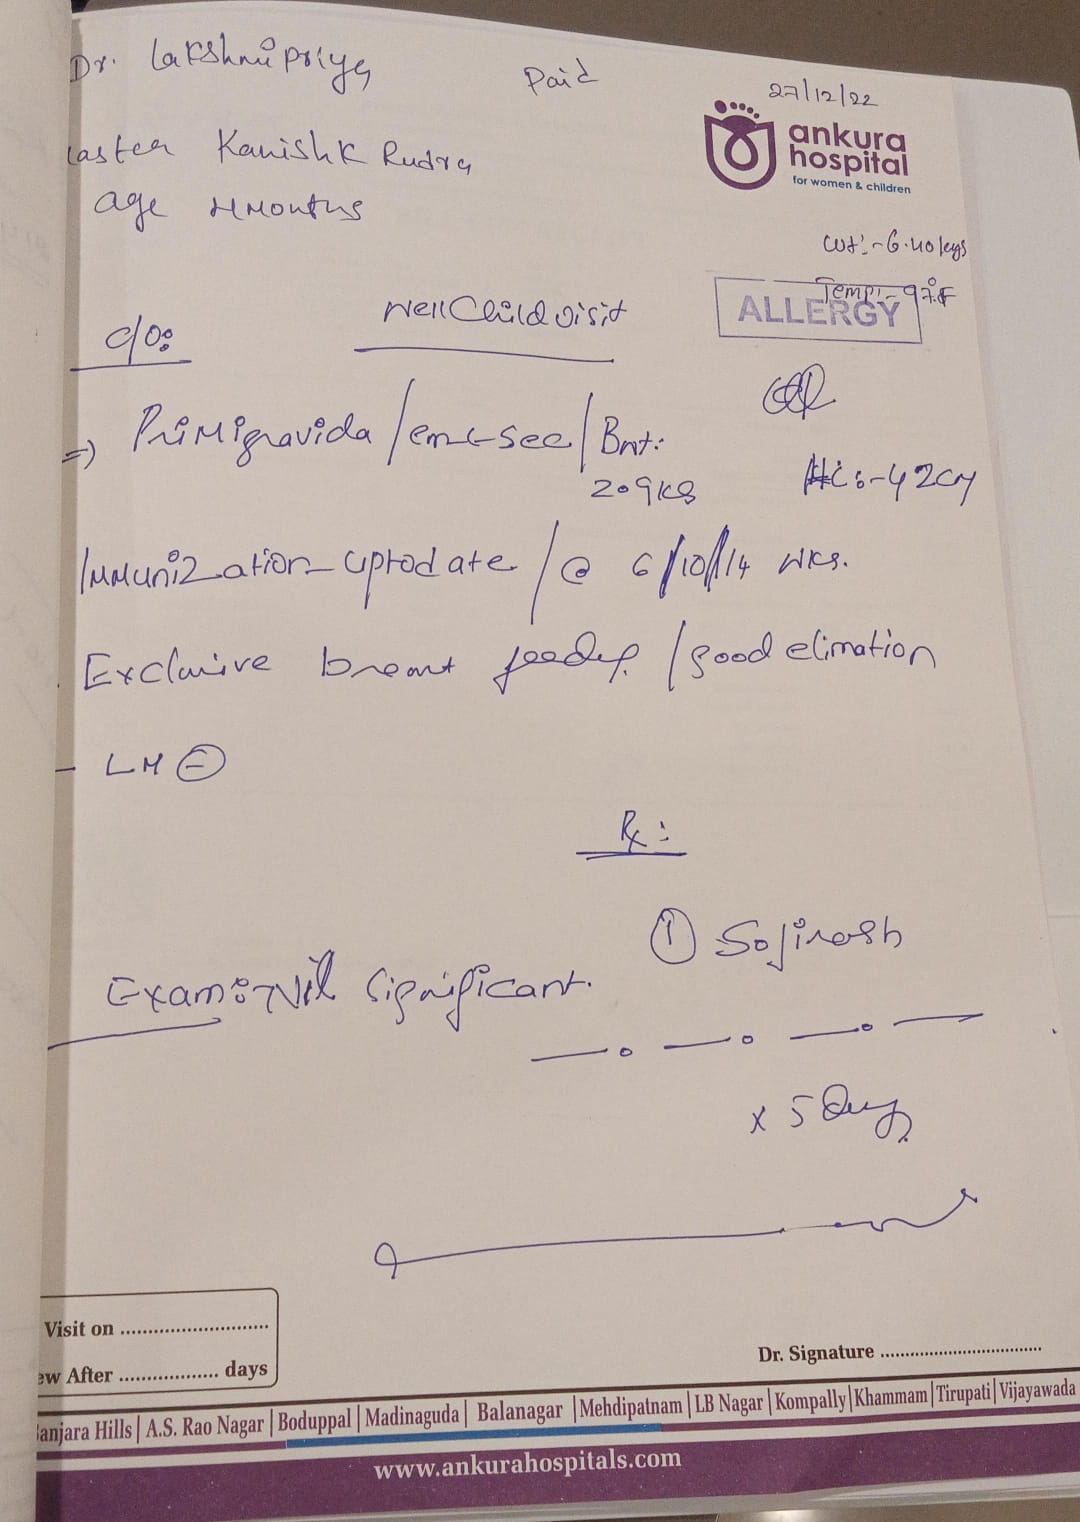 Dr. Lakshmi priya
Paid
27/12/22
ankura
hospital
for women & children
aster Kanishk Rudra
age 4 Months
wt:- 6.40 kgs
Temp:- 97.°F
ALLERGY
c/o:
Well Child visit
=> Primigravida / em c-sec / B.wt:
2.9 kg
HC:- 42cm
Immunization uptodate / @ 6/10/14 wks.
Exclusive breast feeding / good elimation
- LM
Rx:
① Sofirash
Exam:- Nil Significant.
x 5 Days
Visit on
ew After days
Dr. Signature
anjara Hills | A.S. Rao Nagar | Boduppal | Madinaguda | Balanagar | Mehdipatnam | LB Nagar | Kompally | Khammam | Tirupati | Vijayawada
www.ankurahospitals.com